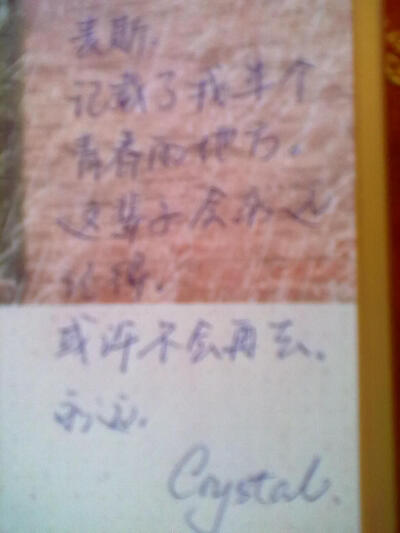 斯，
记载了我半个
青春的地方。
这辈子会永远
记得。
或许不会再去。
永远。
Crystal.